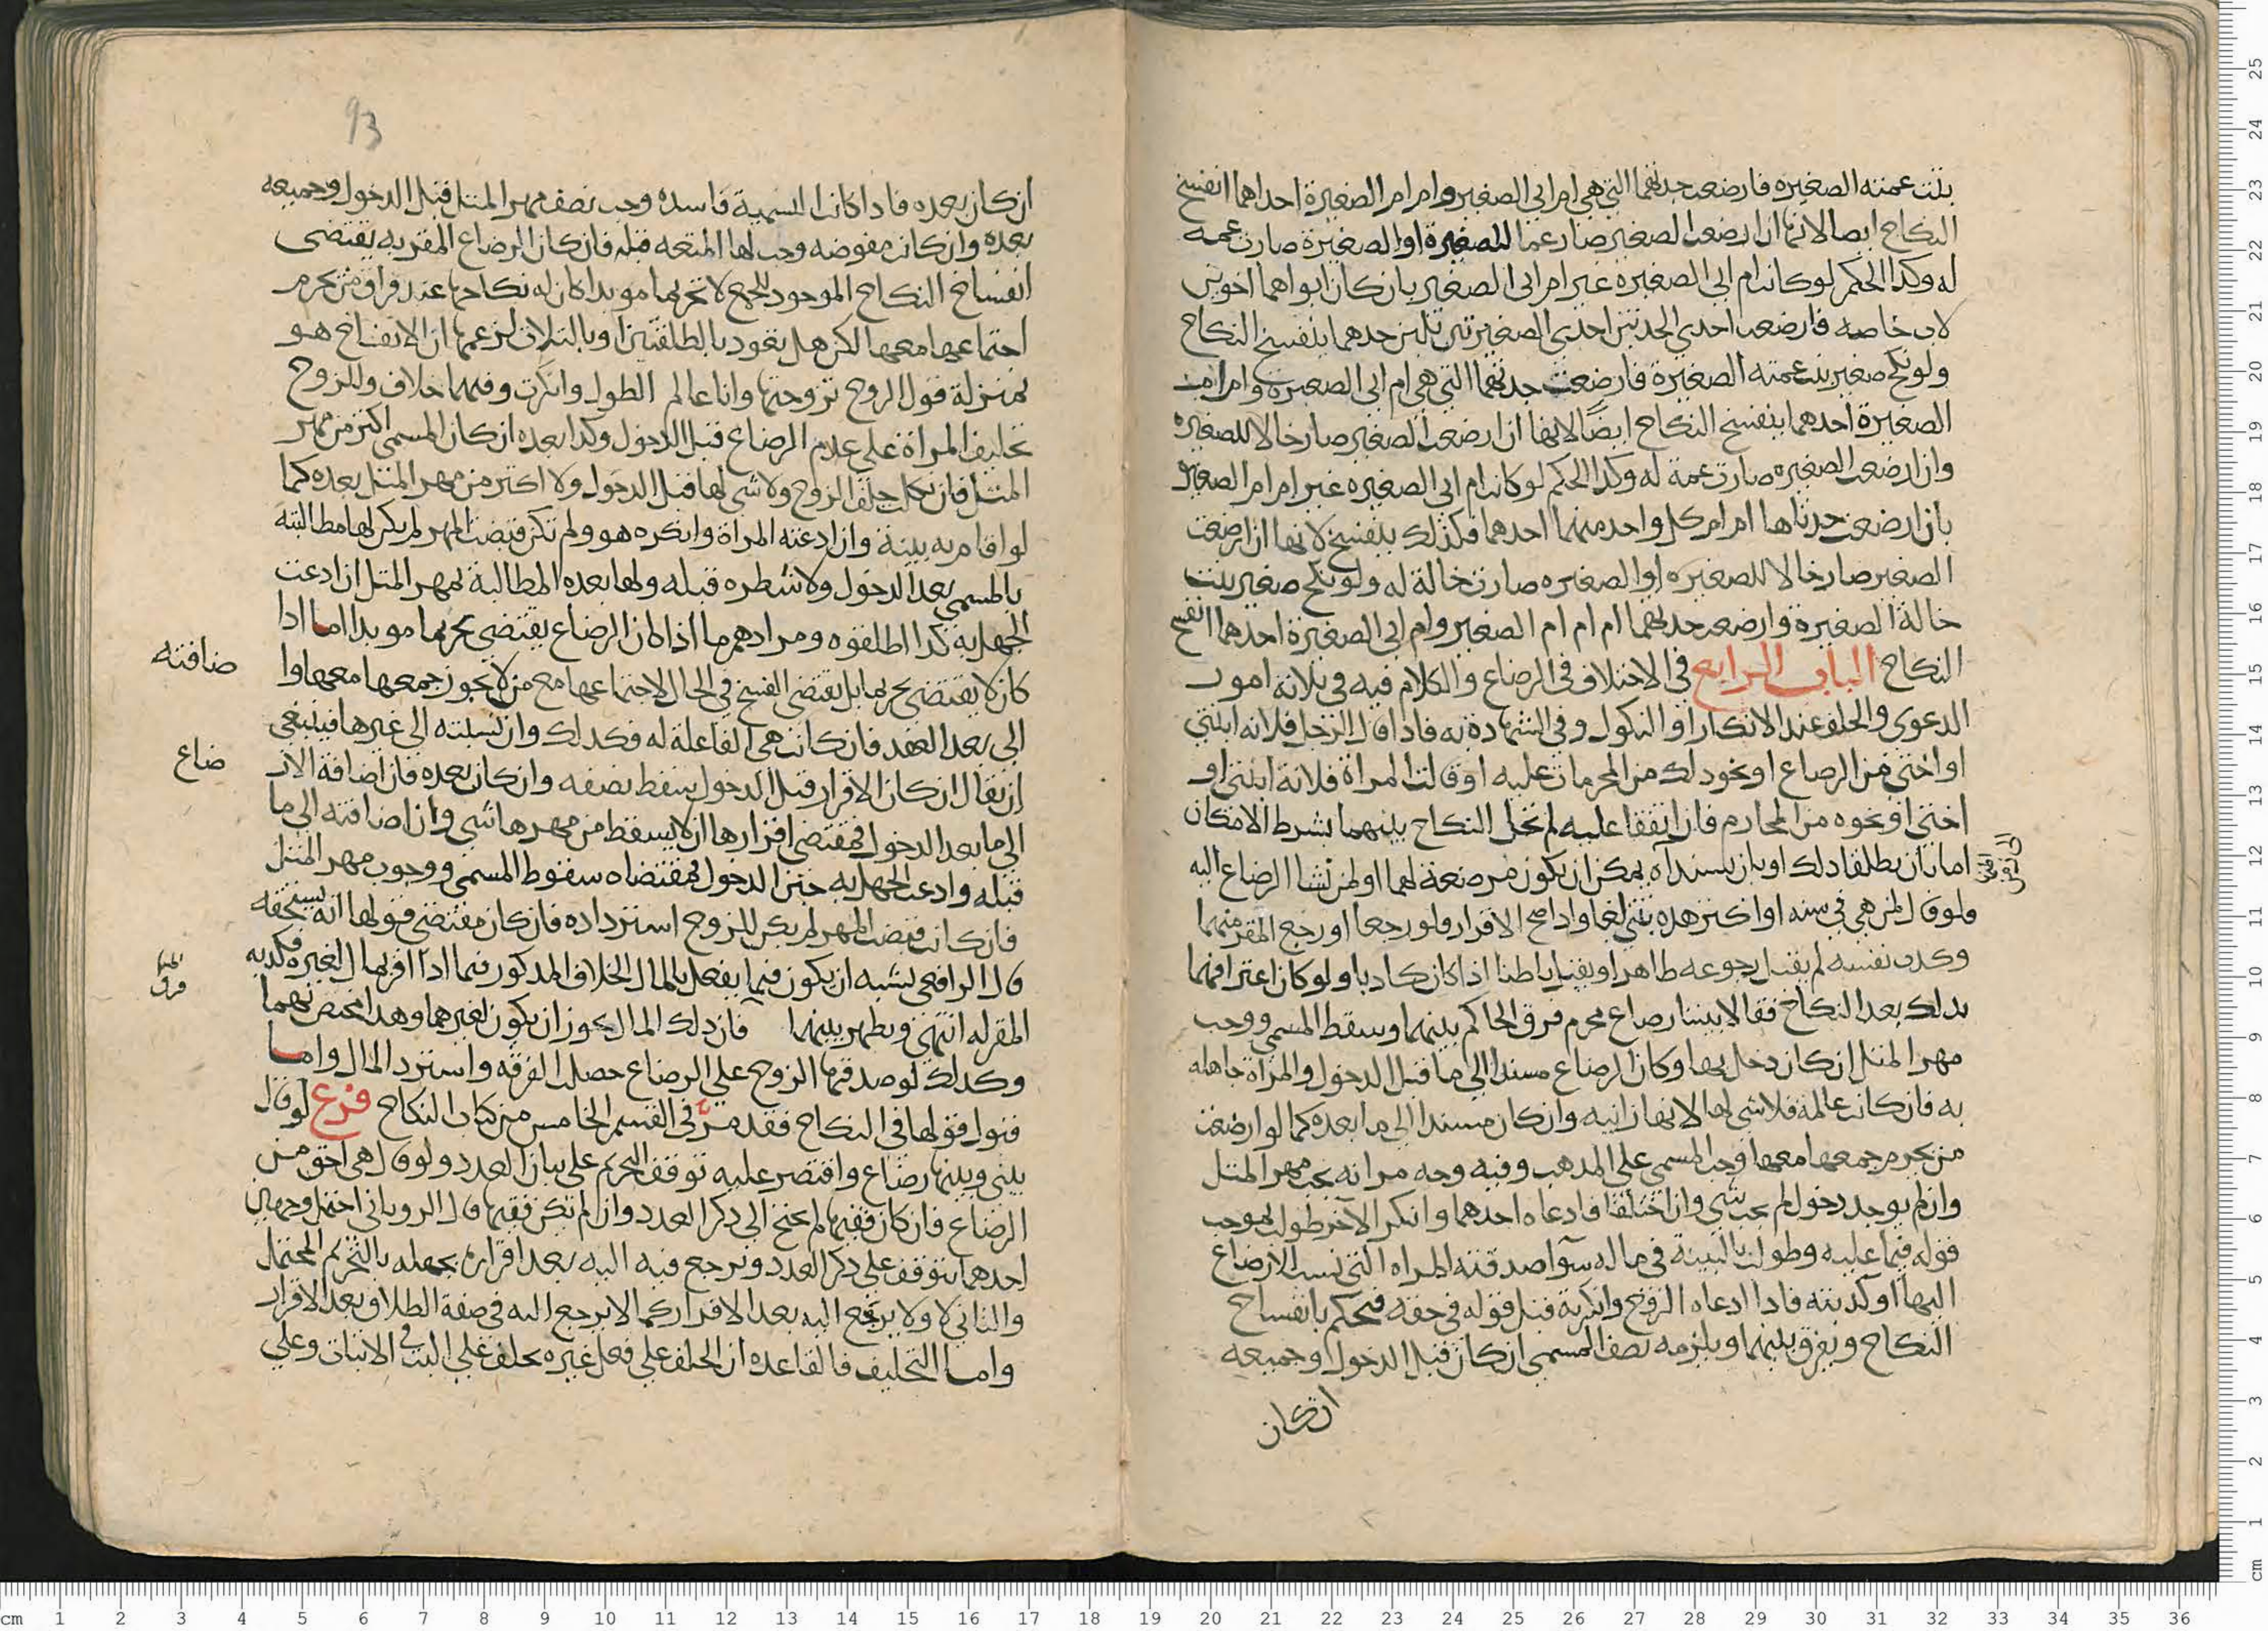 بنت عمته الصغيره فارضعت جدتهما التي هي ام ابي الصغير وام ام الصغيرة احداهما انفسخ
النكاح ايضا لانها ان ارضعت الصغير صار عما للصغيرة او الصغيرة صارت عمه
له وكذا الحكم لو كانت ام ابي الصغيرة غير ام ابي الصغير بان كان ابواهما اخوين
لاب خاصه فارضعت احدى الجدتين احدى الصغيرتين ينفسخ النكاح
ولو نكح صغير بنت عمته الصغيرة فارضعت جدتهما التي هي ام ابي الصغيرة وام ام
الصغيرة احدهما ينفسخ النكاح ايضًا لانها ان ارضعت الصغير صار خالا للصغيره
وان ارضعت الصغيره صارت عمة له وكذا الحكم لو كانت ام ابي الصغيره غير ام ام الصغير
بان ارضعت جدتاها ام ام كل واحد منهما احدهما فكذلك ينفسخ لانها ان ارضعت
الصغير صار خالا للصغيره او الصغيره صارت خالة له ولو نكح صغير بنت
خالة الصغيرة وارضعت جدتهما ام ام ام الصغير وام ابي الصغيرة احدهما انفسخ
النكاح الباب الرابع في الاختلاف في الرضاع والكلام فيه في ثلاثة امور
الدعوى والحلف عند الانكار او النكول وفي الشهادة به فاذا قال الرجل فلانه ابنتي
او اختي من الرضاع او نحو ذلك من المحرمات عليه او قالت المراة فلانة ابنتي او
اختي او نحوه من المحارم فان اتفقا عليه لم تحل النكاح بينهما بشرط الامكان
اما بان يطلقا ذلك او بان يسنداه يمكن ان يكون مرضعة لهما او لمن نشا الرضاع اليه
فلو قال لمن هي في سنه او اكثر هذه بنتي لغا واذا صح الاقرار فلو رجعا او رجع المقر منهما
وكذب نفسه لم يقبل رجوعه ظاهرا ويقبل باطنا اذا كان كاذبا ولو كان اعترافهما
بذلك بعد النكاح فقالا بيننا رضاع محرم فرق الحاكم بينهما وسقط المسمي ووجب
مهر المثل ان كان دخل بها وكان الرضاع مسندا الي ما قبل الدخول والمراة جاهله
به فان كانت عالمة فلا شي لها لانها زانيه وان كان مسندا الي ما بعده كما لو ارضعت
من يحرم جمعها معها وجب المسمي علي المذهب وفيه وجه مر انه يجب مهر المثل
وان لم يوجد دخول لم يجب شي وان اختلفا فادعاه احدهما وانكر الاخر طولب بموجب
قوله فيما عليه وطولب بالبينة في ما له سوا صدقته المراه التي نسب الارضاع
اليها او كذبته فاذا ادعاه الزوج وانكرته قبل قوله في حقه فيحكم بانفساخ
النكاح ويفرق بينهما ويلزمه نصف المسمى ان كان قبل الدخول وجميعه
ان كان
93
ان كان بعده فاذا كانت التسمية فاسده وجب نصف مهر المثل قبل الدخول وجميعه
بعده وان كانت مفوضه وجب لها المتعه قبله فان كان الرضاع المقر به يقتضى
انفساخ النكاح الموجود للجمع لا تحريما موبدا كان له نكاحها عند فراق من يحرم
اجتماعها معها لكن هل يعود بالطلقتين او بالثلاث لزعمها ان الانفساخ هو
بمنزلة قول الزوج تزوجتها وانا عالم الطول وانكرت وفيهما خلاف وللزوج
تحليف المراة علي عدم الرضاع قبل الدخول وكذا بعده ان كان المسمي اكثر من مهر
المثل فان نكلت حلف الزوج ولا شي لها قبل الدخول ولا اكثر من مهر المثل بعده كما
لو اقام به بينة وان ادعته المراة وانكره هو ولم تكن قبضت المهر لم يكن لها مطالبته
بالمسمي بعد الدخول ولا شطره قبله ولها بعده المطالبة بمهر المثل ان ادعت
الجهل به كذا اطلقوه ومرادهم ما اذا كان الرضاع يقتضي تحريما موبدا اما اذا
كان لا يقتضي تحريما بل يقتضي الفسخ في الحال لاجتماعها مع من لا يجوز جمعها معها وا
ضافته
الى بعد العقد فان كانت هي الفاعلة له فكذلك وان نسبته الى غيرها فينبغي
ان يقال ان كان الاقرار قبل الدخول سقط نصفه وان كان بعده فان اضافة الار
ضاع
الي ما بعد الدخول فمقتضى اقرارها ان لا يسقط من مهرها شي وان اضافته الى ما
قبله وادعت الجهل به حين الدخول فمقتضاه سقوط المسمي ووجوب مهر المثل
فان كانت قبضت المهر لم يكن للزوج استرداده فان كان مقتضي قولها انه يستحقه
قال الرافعي يشبه ان يكون فيما يفعل بالمال الخلاف المذكور فيما اذا اقر بمال لغيره فكذبه
المقر له انتهى ويظهر بينهما فان ذلك المال يجوز ان يكون لغيرهما وهذا مختص بهما
وكذلك لو صدقها الزوج علي الرضاع حصلت الفرقه واسترد المال واما
قبول قولها في النكاح فقد مر في القسم الخامس من كتاب النكاح فرع لو قال
بيني وبينها رضاع واقتصر عليه توقف التحريم علي بيان العدد ولو قال هي اختي من
الرضاع فان كان فقيها لم يحتج الى ذكر العدد وان لم يكن فقيها قال الروياني احتمل وجهان
احدهما يتوقف علي ذكر العدد ويرجع فيه اليه بعد اقراره بجهله بالتحريم المحتمل
والثاني لا ولا يرجع اليه بعد الاقرار كما لا يرجع اليه في صفة الطلاق بعد الاقرار
واما التحليف فالقاعده ان الحلف علي فعل غيره يحلف علي البت في الاثبات وعلي